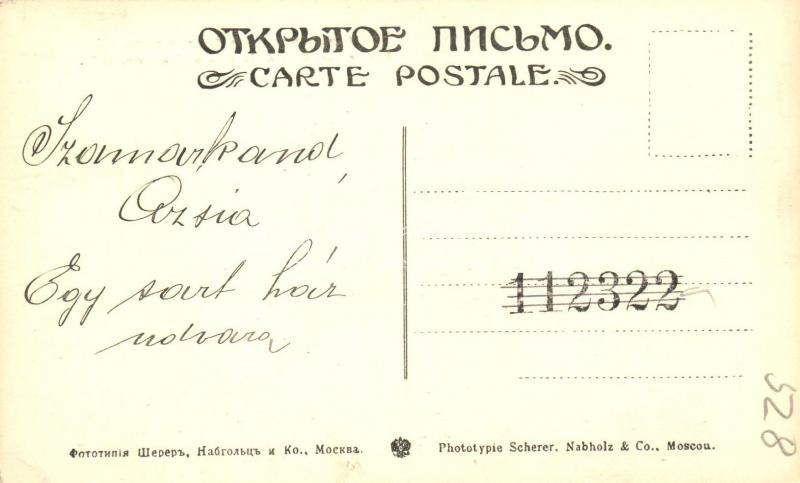 ОТКРЫТОЕ ПИСЬМО.
CARTE POSTALE.
Szamarkand,
Ázsia
Egy sart ház
udvara
112322
528
Фототипія Шереръ, Набгольцъ и Ко., Москва.
Phototypie Scherer, Nabholz & Co., Moscou.